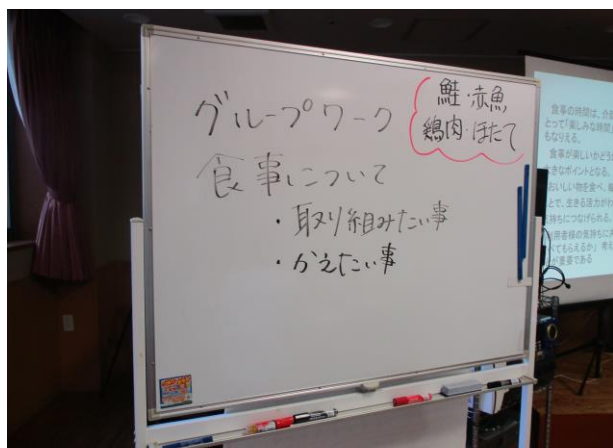 グループワーク
鮭・赤魚
鶏肉・ほたて
食事について
・取り組みたい事
・かえたい事
食事の時間は、介
とって「楽しみな時間
もなりえる。
食事が楽しいかどう
大きなポイントとなる。
おいしい物を食べ、
とで、生きる活力が
気持ちにつなげられる。
利用者様の気持ちに
べてもらえるか」考え
が重要である